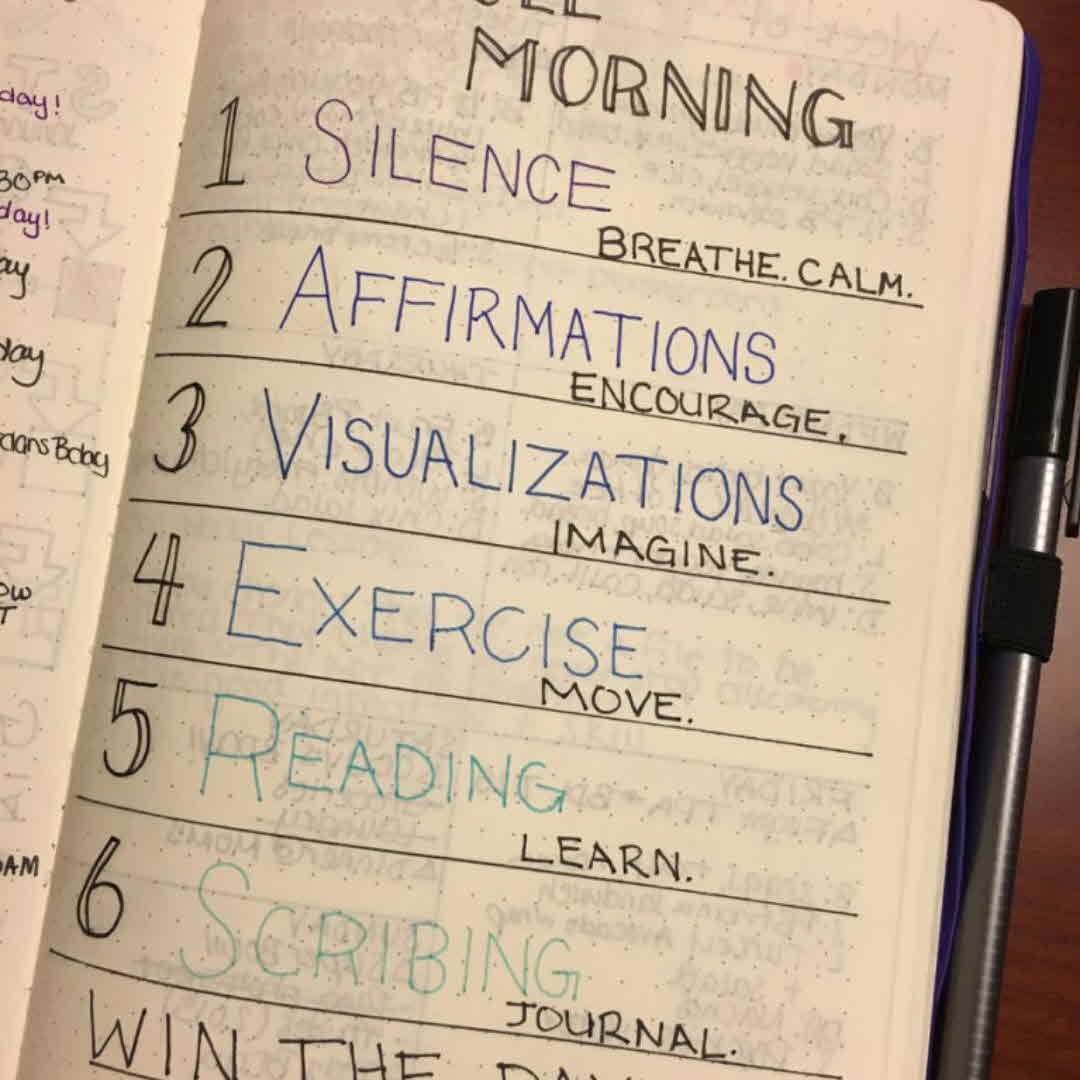 MORNING
1 SILENCE
BREATHE. CALM.
2 AFFIRMATIONS
ENCOURAGE.
3 VISUALIZATIONS
IMAGINE.
4 EXERCISE
MOVE.
5 READING
LEARN.
6 SCRIBING
JOURNAL.
WIN THE DAY
day!
30PM
day!
ay
day
dans Baby
OW
T
AM